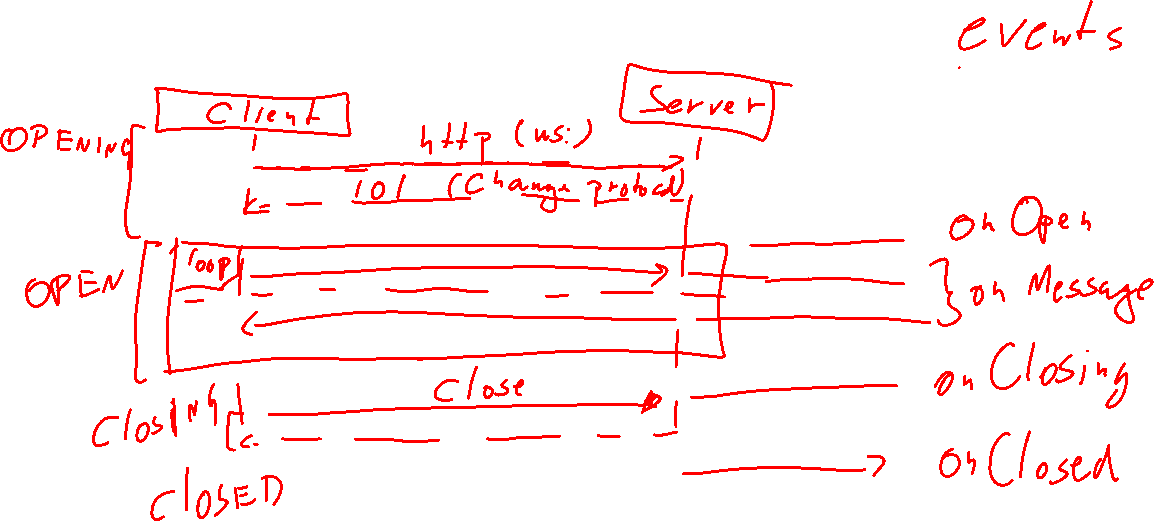 events
Client
Server
OPENING
http (ws:)
101 (Change protocol)
on Open
loop
OPEN
on Message
on Closing
Close
CLOSING
on Closed
CLOSED